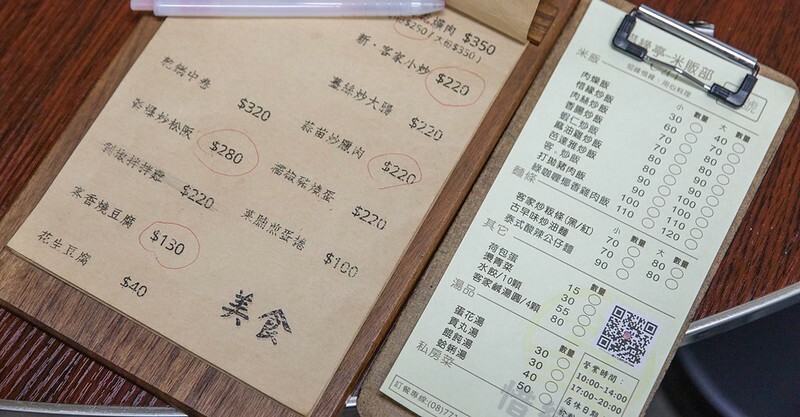 横肉 $350
$250 / 大份$350)
新·客家小炒 $220
薑絲炒大腸 $220
蒜苗炒臘肉 $220
$220
菜脯煎蛋捲 $100
中卷 $320
炒松阪 $280
$220
燒豆腐 $130
花生豆腐 $40
美食
亭-米販部
號
米飯 小 數量 大 數量
肉燥飯 30 40
惜緣炒飯 60 70
肉絲炒飯 60 70
香腸炒飯 70 80
蝦仁炒飯 80 90
麻油雞炒飯 80 90
芭達雅炒飯 80 90
客.炒飯 90 100
打拋豬肉飯 100 110
綠咖喱椰香雞肉飯 110 120
麵條 數量 數量
客家炒粄條(黑/紅) 70 80
古早味炒油麵 70 80
泰式酸辣公仔麵 90
其它 數量
荷包蛋 15
燙青菜 30
水餃/10顆 55
客家鹹湯圓/4顆 80
湯品 數量
蛋花湯 30
貢丸湯 30
餛飩湯 40
蛤蜊湯 50
私房菜
營業時間:
10:00-14:00
17:00-20:00
店休日期
訂餐專線:(08)77
惜